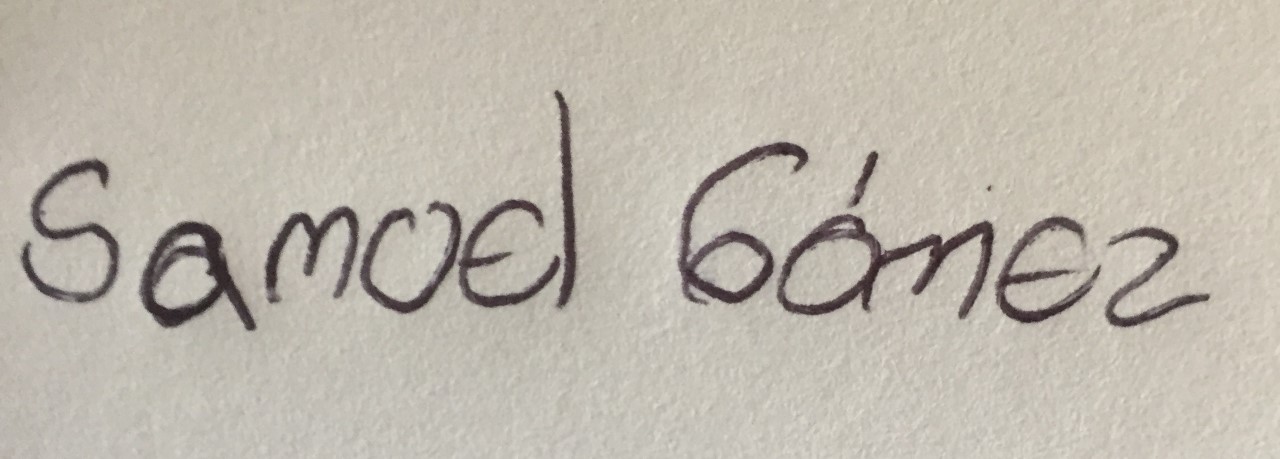 Samuel Gámez